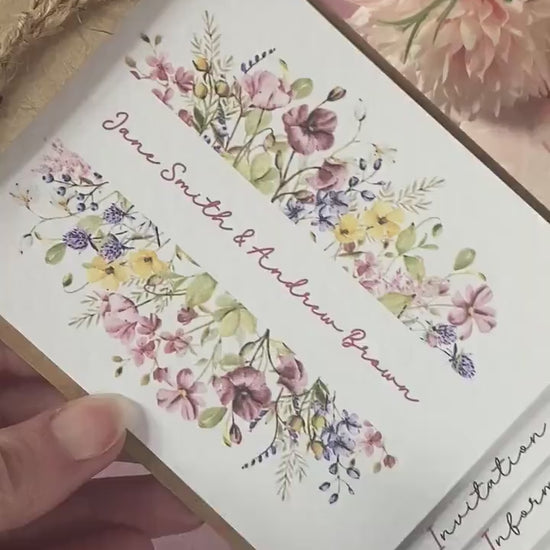 Jane Smith & Andrew Brown
Invitation